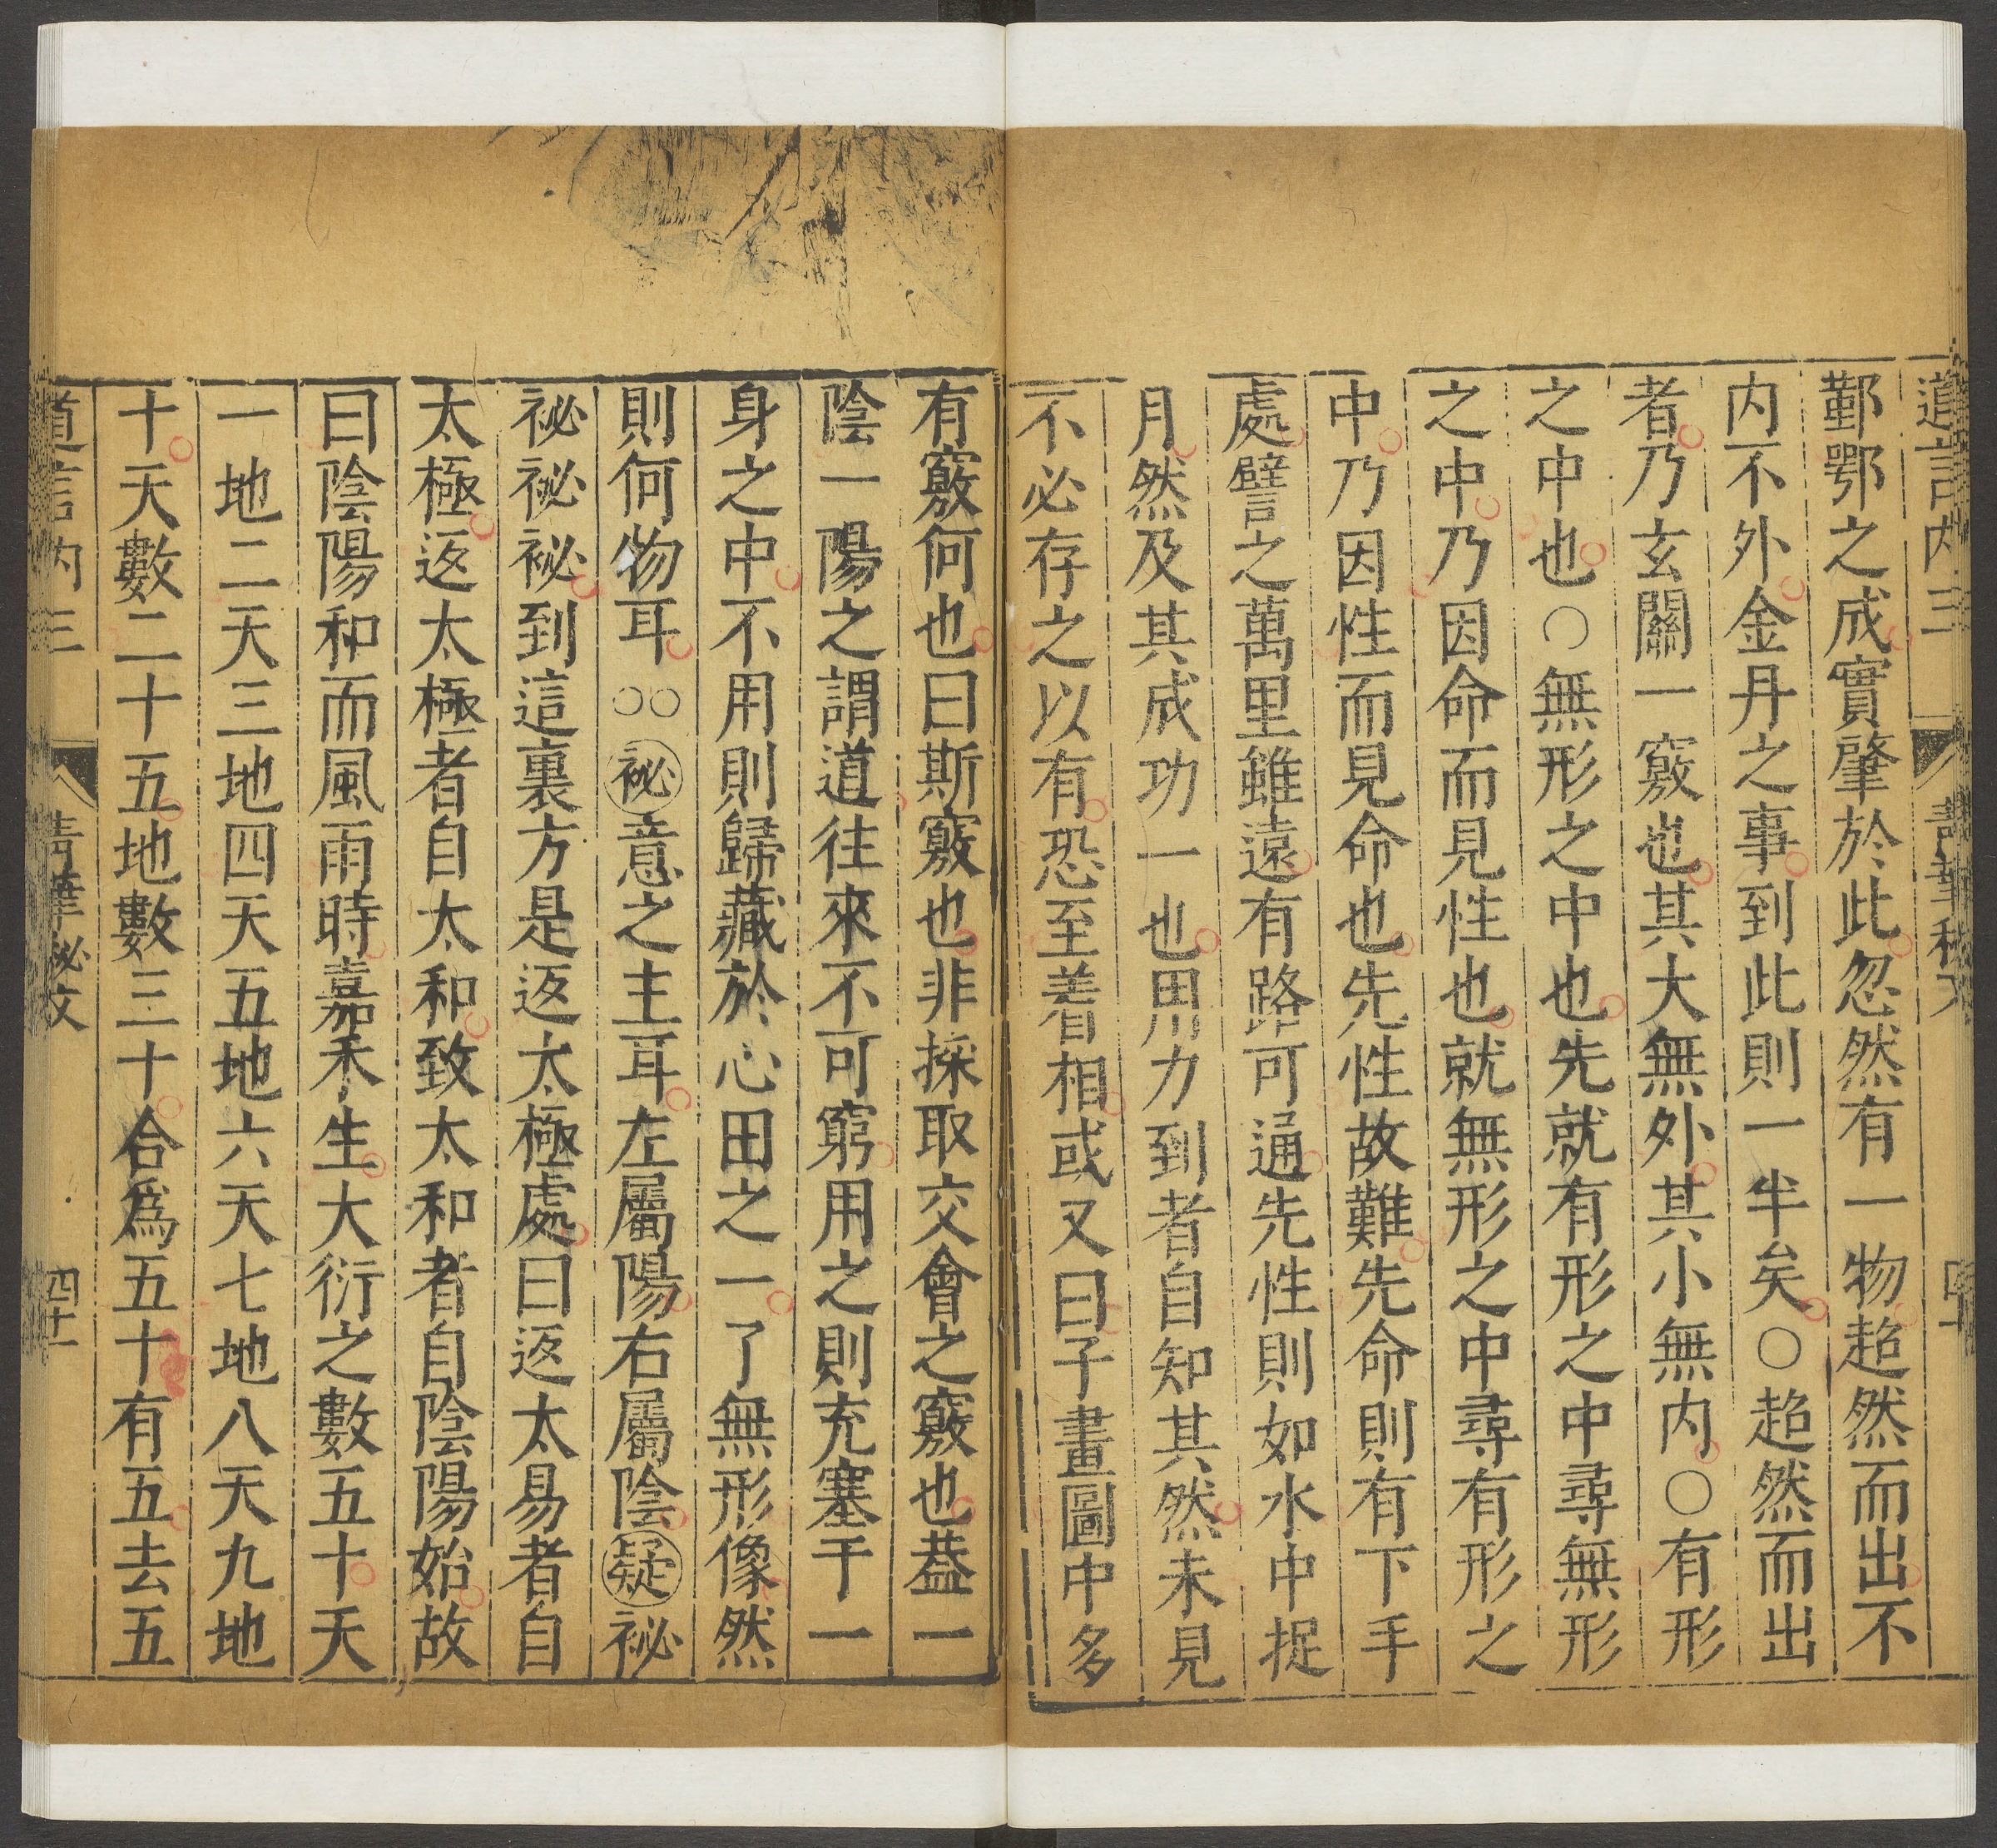 道言内三 青華秘文
鄞鄂之成實肇於此忽然有一物超然而出不
内不外金丹之事到此則一半矣○超然而出
者乃玄關一竅也其大無外其小無内○有形
之中也○無形之中也先就有形之中尋無形
之中乃因命而見性也就無形之中尋有形之
中乃因性而見命也先性故難先命則有下手
處譬之萬里雖遠有路可通先性則如水中捉
月然及其成功一也用力到者自知其然未見
不必存之以有恐至着相或又曰子畫圖中多
有竅何也曰斯竅也非採取交會之竅也葢一
陰一陽之謂道往來不可窮用之則充塞于一
身之中不用則歸藏於心田之一了無形像然
則何物耳○○祕意之主耳左屬陽右屬陰疑祕
祕祕祕到這裏方是返太極處曰返太易者自
太極返太極者自太和致太和者自陰陽始故
曰陰陽和而風雨時嘉禾生大衍之數五十天
一地二天三地四天五地六天七地八天九地
十天數二十五地數三十合爲五十有五去五
道言内三 青華祕文 四十一